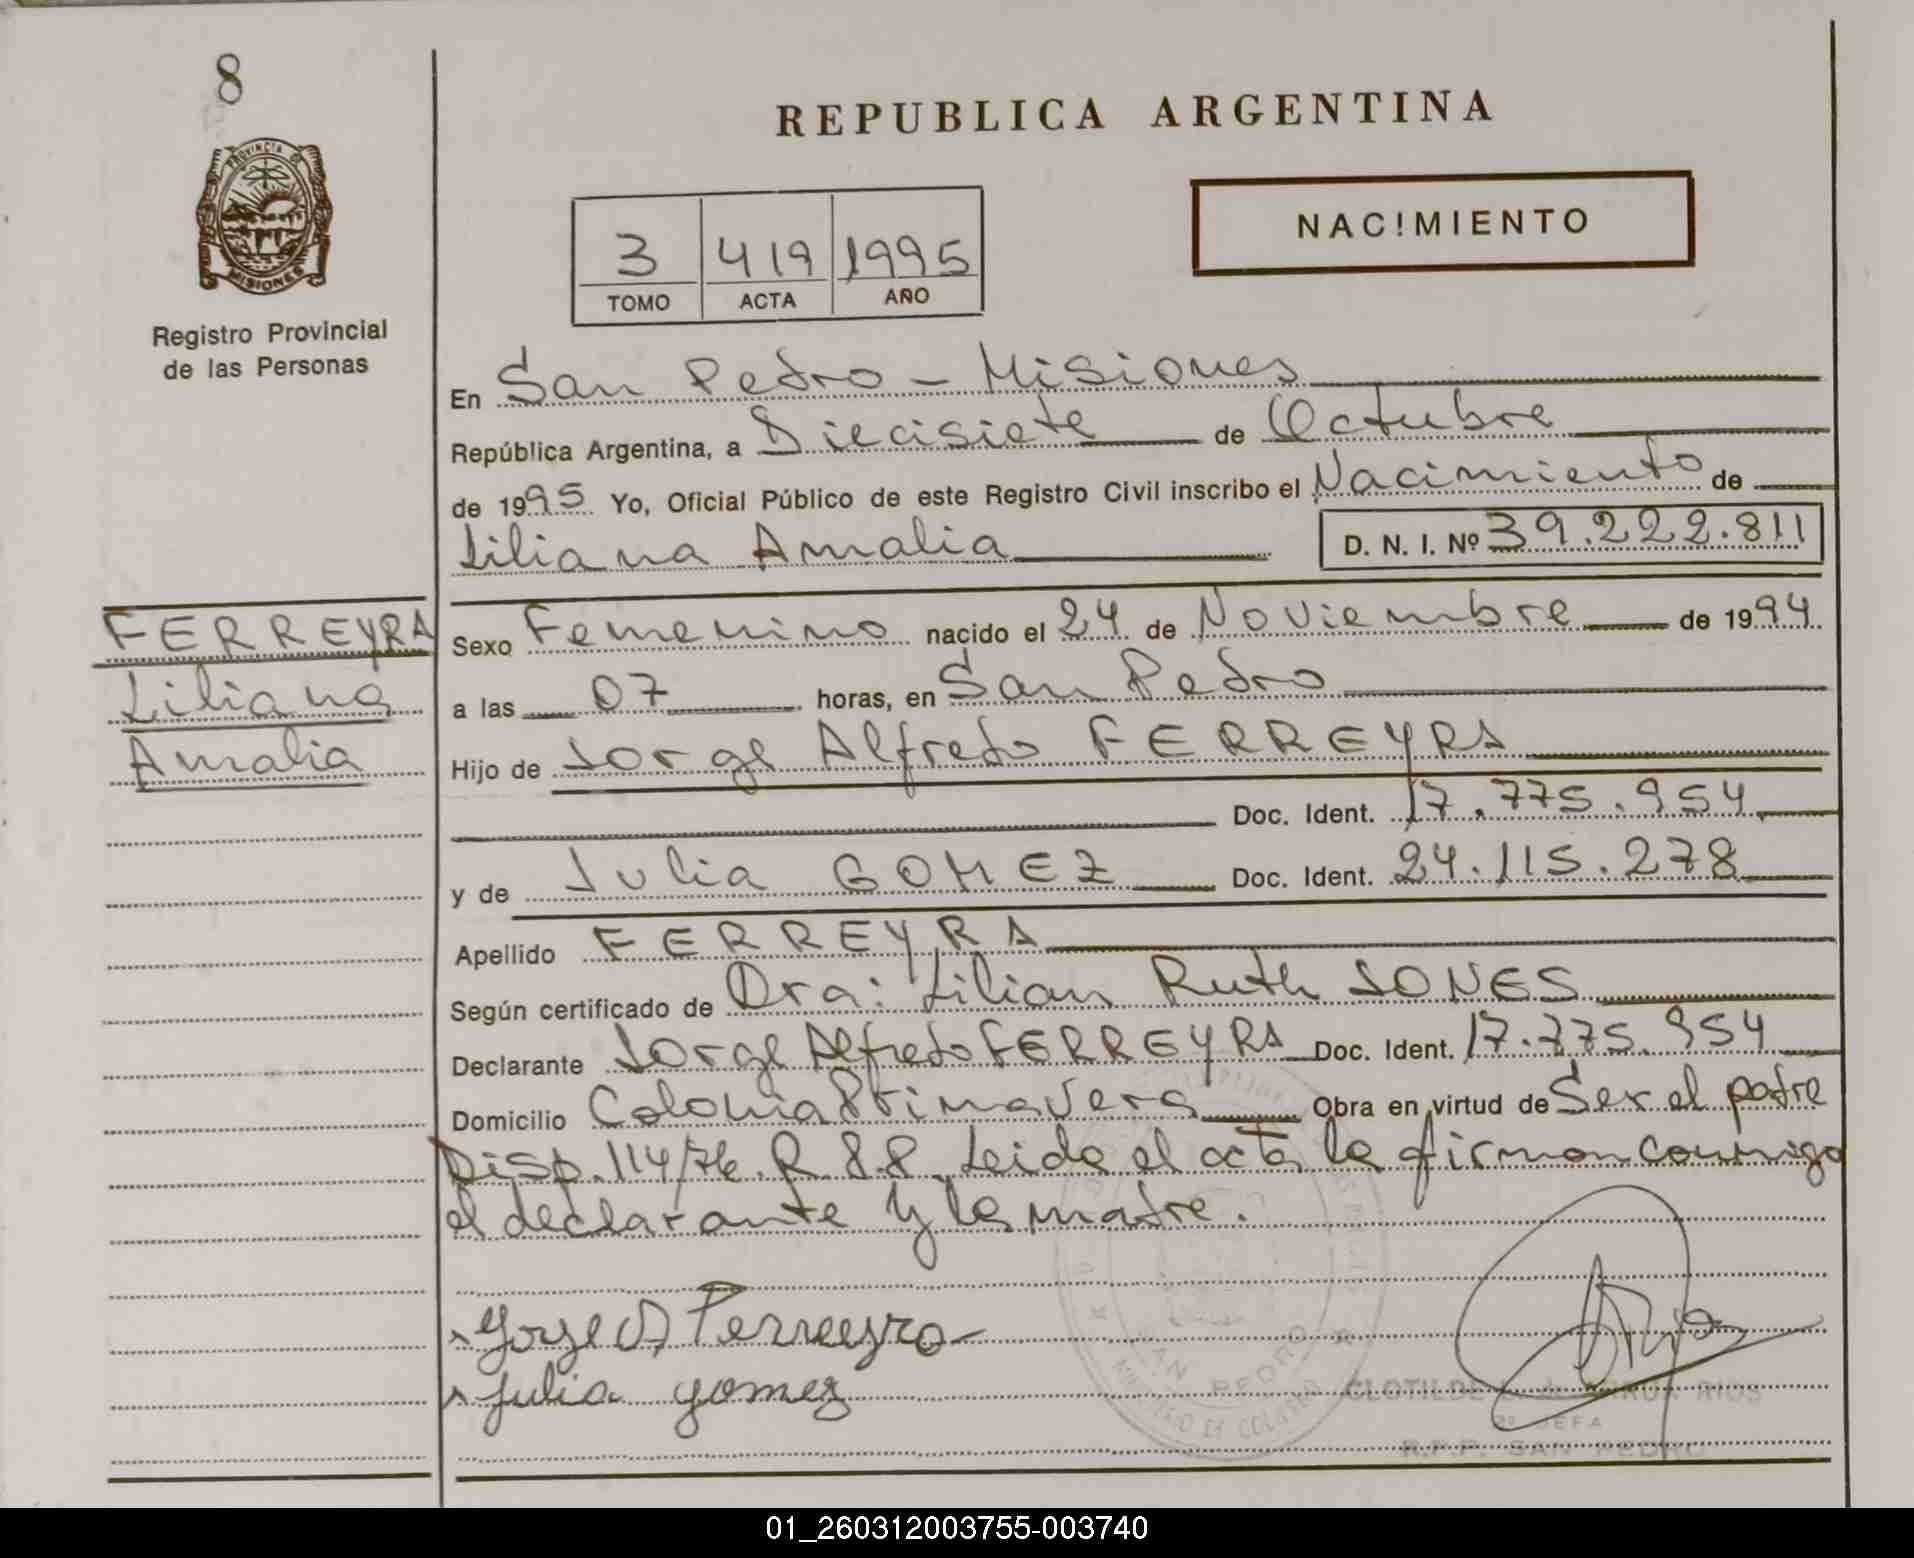 8
PROVINCIA DE
MISIONES
Registro Provincial
de las Personas
REPUBLICA ARGENTINA
NACIMIENTO
3 419 1995
TOMO ACTA AÑO
En San Pedro - Misiones
República Argentina, a Diecisiete de Octubre
de 1995 Yo, Oficial Público de este Registro Civil inscribo el Nacimiento de
Liliana Amalia D. N. I. Nº 39.222.811
FERREYRA
Liliana
Amalia
Sexo Femenino nacido el 24 de Noviembre de 1994
a las 07 horas, en San Pedro
Hijo de Jorge Alfredo FERREYRA
Doc. Ident. 17.775.954
y de Julia GOMEZ Doc. Ident. 24.115.278
Apellido FERREYRA
Según certificado de Dra: Lilian Ruth JONES
Declarante Jorge Alfredo FERREYRA Doc. Ident. 17.775.954
Domicilio Colonia Primavera Obra en virtud de Ser el padre
Disp. 114/76. R.P.P. Leida el acta la firman conmigo
el declarante y la madre.
Jorge A. Ferreyra
Julia gomez
SAN PEDRO
CLOTILDE RIOS
JEFA
R.P.P. SAN PEDRO
01_260312003755-003740